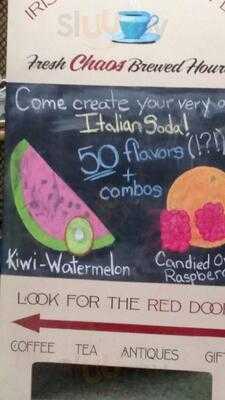 Fresh Chaos Brewed Hour
Come create your very o
Italian Soda!
50 flavors (!?!)
+
combos
Kiwi-Watermelon
Candied O
Raspber
LOOK FOR THE RED DOO
COFFEE TEA ANTIQUES GIF